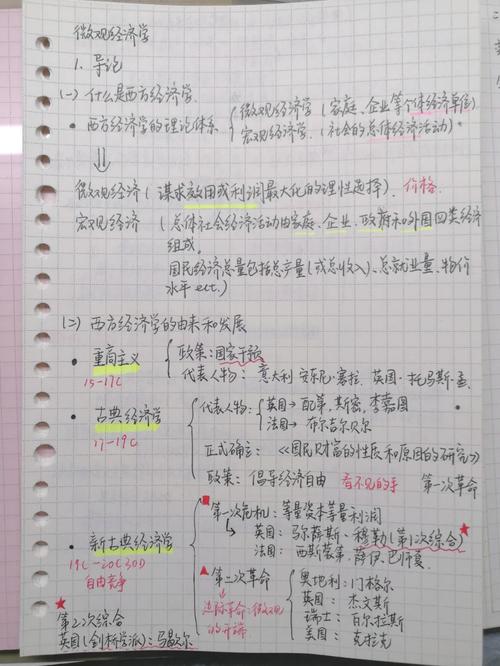 微观经济学
1. 导论
(一) 什么是西方经济学.
• 西方经济学的理论体系 { 微观经济学 (家庭、企业等个体经济单位)
宏观经济学. (社会的总体经济活动)
⇓
微观经济 (谋求效用或利润最大化的理性选择). 价格.
宏观经济 (总体社会经济活动由家庭、企业、政府和外国四类经济
组成.
国民经济总量包括总产量(或总收入)、总就业量、物价
水平 ect.)
(二) 西方经济学的由来和发展
• 重商主义 { 政策: 国家干预
15-17C 代表人物: 意大利 安东尼·塞拉, 英国·托马斯·孟.
• 古典经济学 { 代表人物: { 英国→ 配第, 斯密, 李嘉图
17-19C 法国→ 布尔吉尔贝尔
正式确立: 《国民财富的性质和原因的研究》
政策: 倡导经济自由 看不见的手 第一次革命
• 新古典经济学 { 第一次危机: 等量资本等量利润
19C-20C30D → 英国: 马尔萨斯·穆勒(第1次综合)
自由竞争 法国: 西斯蒙第·萨伊·巴师夏.
第二次革命 { 奥地利: 门格尔
边际革命: 微观 英国: 杰文斯
的开端 瑞士: 瓦尔拉斯
美国: 克拉克
第2次综合
英国(剑桥学派): 马歇尔